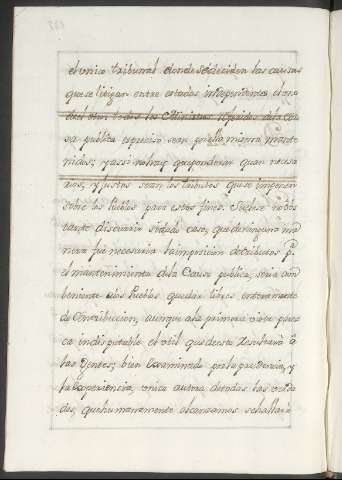 el unico tribunal donde se deciden las causas
que se litigan entre estados independientes, el uno
del otro: todos los Ministros referidos à la Cau-
sa publica es preciso sean por ella misma mante
nidos; y assi no hay que ponderar quan necesa
rios, y justos sean los tributos que se imponen
sobre los Pueblos para estos fines. Supuesto
tante discurrir si dado caso, que de ninguna ma
nera fue necesaria la imposicion de tributos pª.
el mantenimiento de la Causa publica, seria con
beniente à los Pueblos quedar libres enteramente
de Contribuccion, aunque à la primera vista pares
ca indisputable el util que de esta Resultaria à
las Gentes; bien Examinado por la prudencia, y
la Experiencia, unica autora de todas las verda
des, que humanamente alcanzamos se hallara